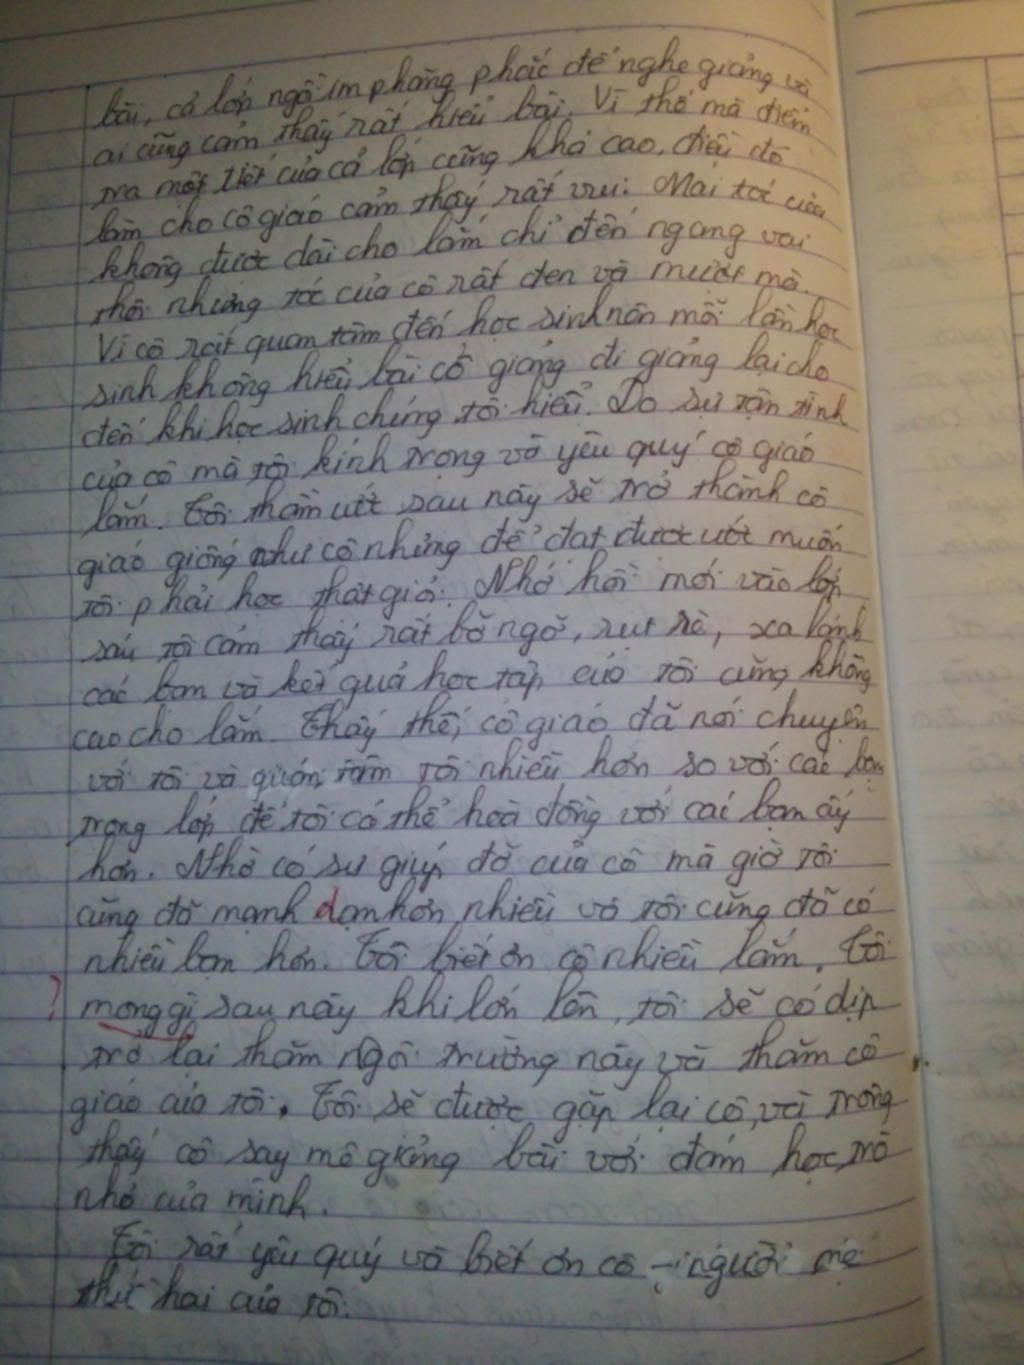 bài, cả lớp ngồi im phăng phắc để nghe giảng và
ai cũng cảm thấy rất hiểu bài. Vì thế mà điểm
tra một tiết của cả lớp cũng khá cao, điều đó
làm cho cô giáo cảm thấy rất vui. Mái tóc của
không được dài cho lắm chỉ đến ngang vai
thôi nhưng tóc của cô rất đen và mượt mà.
Vì cô rất quan tâm đến học sinh nên mỗi lần học
sinh không hiểu bài cô giảng đi giảng lại cho
đến khi học sinh chúng tôi hiểu. Do sự tận tình
của cô mà tôi kính trọng và yêu quý cô giáo
lắm. Tôi thầm ước sau này sẽ trở thành cô
giáo giống như cô nhưng để đạt được ước muốn
tôi phải học thật giỏi. Nhớ hồi mới vào lớp
sáu tôi cảm thấy rất bỡ ngỡ, rụt rè, xa lánh
các bạn và kết quả học tập của tôi cũng không
cao cho lắm. Thấy thế, cô giáo đã nói chuyện
với tôi và quan tâm tôi nhiều hơn so với các bạn
trong lớp để tôi có thể hoà đồng với các bạn ấy
hơn. Nhờ có sự giúp đỡ của cô mà giờ tôi
cũng đã mạnh dạn hơn nhiều và tôi cũng đã có
nhiều bạn hơn. Tôi biết ơn cô nhiều lắm. Tôi
? mong gì sau này khi lớn lên, tôi sẽ có dịp
trở lại thăm ngôi trường này và thăm cô
giáo của tôi. Tôi sẽ được gặp lại cô, và trông
thấy cô say mê giảng bài với đám học trò
nhỏ của mình.
Tôi rất yêu quý và biết ơn cô - người mẹ
thứ hai của tôi.